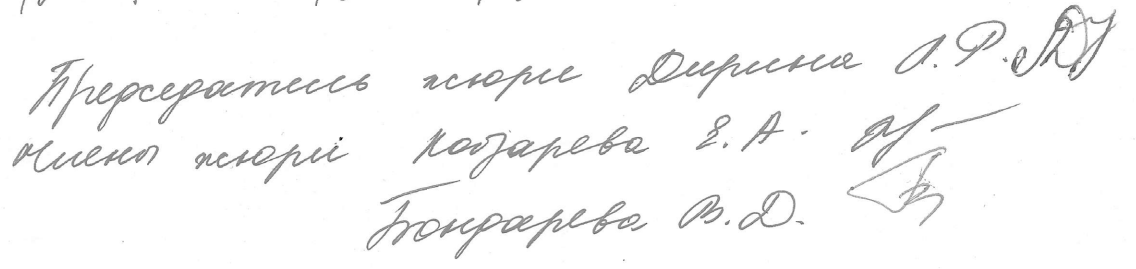 Председатель жюри Дирина А.Р.
Члены жюри Кобзарева Е.А.
Бондарева В.Д.